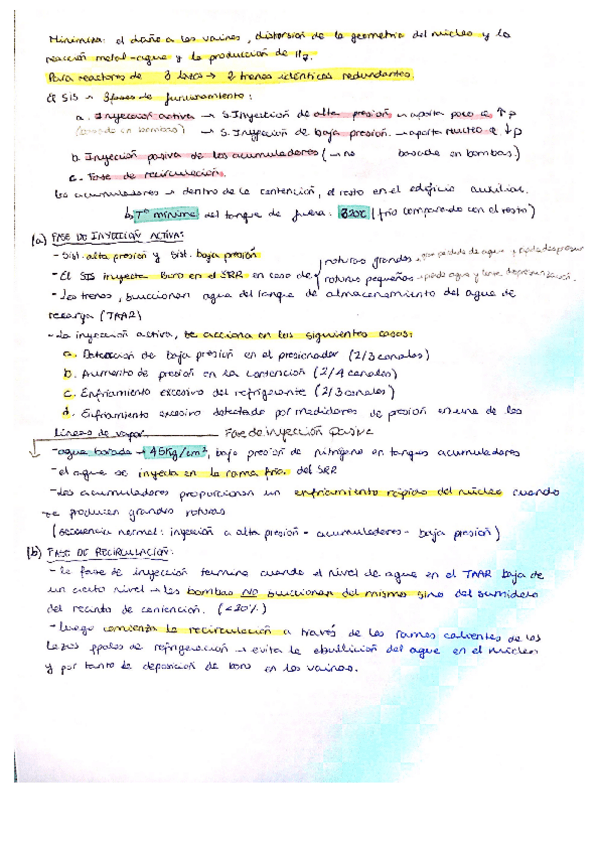 Minimiza: el daño a las vainas, distorsión de la geometría del núcleo y la
reacción metal-agua y la producción de H2.
Para reactores de 3 lazos → 2 trenes idénticos redundantes.
El SIS → 3 fases de funcionamiento:
a. Inyección activa → S. Inyección de alta presión → aporta poco Q ↑p
(basada en bombas) → S. Inyección de baja presión. → aporta mucho Q ↓p
b. Inyección pasiva de los acumuladores (→ no basada en bombas.)
c. Fase de recirculación.
Los acumuladores → dentro de la contención, el resto en el edificio auxiliar.
Tª mínima del tanque de fuera: (frío comparando con el resto)
(a) FASE DE INYECCIÓN ACTIVA:
- Sist. alta presión y sist. baja presión
- El SIS inyecta Boro en el SRR en caso de: roturas grandes → gran pérdida de agua y rápida despresur
roturas pequeñas → pierde agua y lenta despresurización.
- Los trenes, succionan agua del tanque de almacenamiento del agua de
recarga (TAAR)
- La inyección activa, se acciona en los siguientes casos:
a. Detección de baja presión en el presionador (2/3 canales)
b. Aumento de presión en la contención (2/4 canales)
c. Enfriamiento excesivo del refrigerante (2/3 canales)
d. Enfriamiento excesivo detectado por medidores de presión en una de las
líneas de vapor
Fase de inyección Pasiva
- agua borada → 45Kg/cm², bajo presión de nitrógeno en tanques acumuladores
- el agua se inyecta en la rama fría del SRR
- Los acumuladores proporcionan un enfriamiento rápido del núcleo cuando
se producen grandes roturas
(secuencia normal: inyección a alta presión - acumuladores - baja presión)
(b) FASE DE RECIRCULACIÓN:
- La fase de inyección termina cuando el nivel de agua en el TAAR baja de
un cierto nivel → las bombas NO succionan del mismo sino del sumidero
del recinto de contención. (<20%)
- Luego comienza la recirculación a través de las ramas calientes de los
lazos ppales de refrigeración → evita la ebullición del agua en el núcleo
y por tanto la deposición de boro en las vainas.